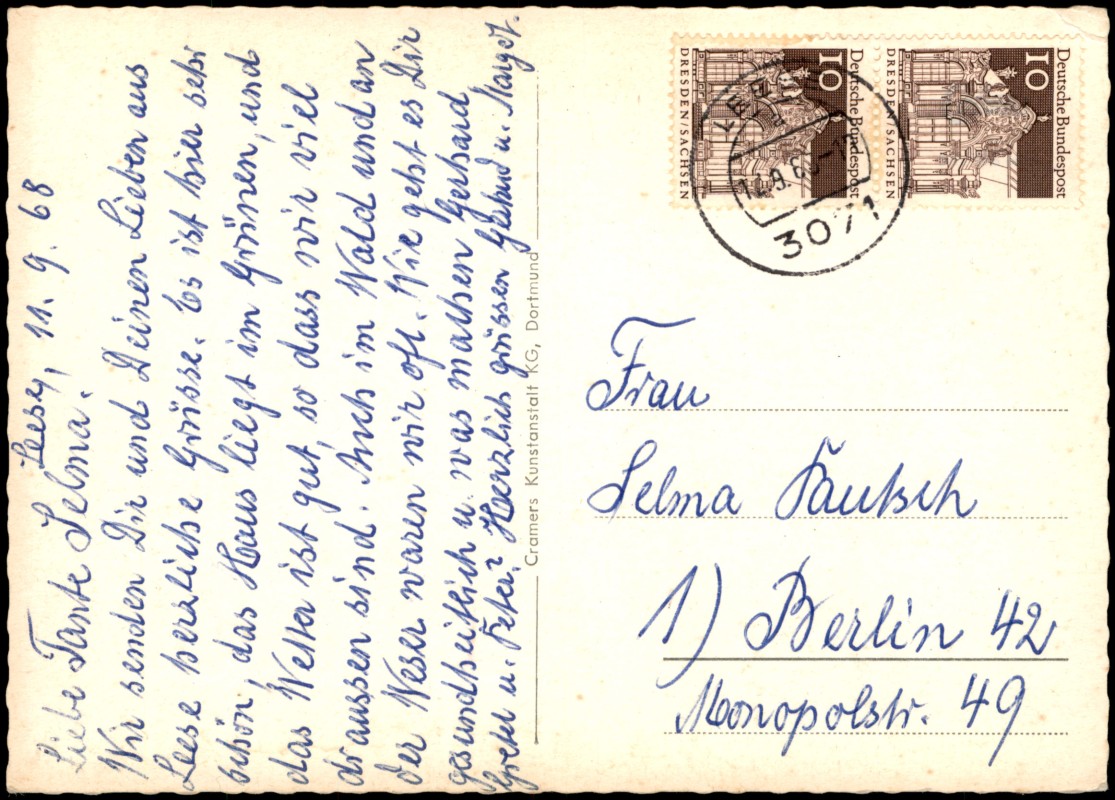 Leese, 11. 9. 68
Liebe Tante Selma!
Wir senden Dir und Deinen Lieben aus
Leese herzliche Grüsse. Es ist hier sehr
schön, das Haus liegt im Grünen, und
das Wetter ist gut, so dass wir viel
draussen sind. Auch im Wald und an
der Weser waren wir oft. Wie geht es Dir
gesundheitlich u. was machen Gerhard
u. Peter? Herzlich grüssen Gerhard u. Margot.
Cramers Kunstanstalt KG, Dortmund
10
Deutsche Bundespost
DRESDEN/SACHSEN
10
Deutsche Bundespost
DRESDEN/SACHSEN
3071
Frau
Selma
1) Berlin 42
Monopolstr. 49